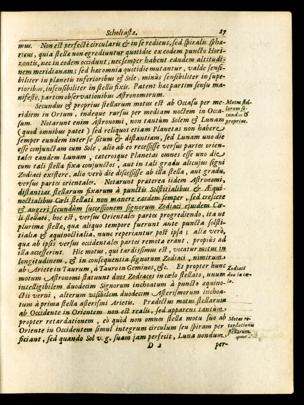 Scholiasta. 27
mus. Non est perfectè circularis & in se rediens, sed spiralis sphæ-
ricus, quia stellæ non egrediuntur quotidie ex eodem puncto Hori-
zontis, nec in eodem occidunt; nec semper habent eandem altitudi-
nem meridianam; sed hæc omnia quotidie mutantur, valde sensi-
biliter in planetis inferioribus & Sole, minùs sensibiliter in supe-
rioribus, insensibiliter in stellis fixis. Patent hæc partim sensu ma-
nifestè, partim observationibus Astronomorum.
Secundus & proprius stellarum motus est ab Occasu per Me-
ridiem in Ortum, indeque rursus per mediam noctem in Occa-
sum. Notarunt enim Astronomi, non tantùm Solem & Lunam
(quod omnibus patet) sed reliquos etiam Planetas non habere
semper eundem inter se situm & distantiam, sed Lunam uno die
esse conjunctam cum Sole, alio ab eo recessisse versus partes orien-
tales eandem Lunam, cæterosque Planetas omnes esse uno die
cum tali stella fixa conjunctos, aut in tali gradu alicujus signi
Zodiaci existere, alio verò die discessisse ab illa stella, aut gradu,
versus partes orientales. Notarunt præterea iidem Astronomi,
distantias stellarum fixarum à punctis Solstitialibus & Æqui-
noctialibus Cœli stellati non manere eandem semper, sed crescere
& augeri secundùm successionem signorum Zodiaci ejusdem Cœ-
li stellati, hoc est, versus Orientales partes progrediendo, ita ut
plurima stella, quæ aliquo tempore fuerunt ante puncta solsti-
tialia & æquinoctialia, nunc reperiantur post ipsa; alia verò,
quæ ab ipsis versus occidentales partes remota erant, propiùs ad
illa accesserint. Hic motus, qui tardissimus est, vocatur motus in
longitudinem, & in consequentia signorum Zodiaci, nimirum
ab Ariete in Taurum, à Tauro in Geminos, &c. Et propter hunc
motum Astronomi statuunt duos Zodiacos in cœlo stellato, unum
intelligibilem duodecim Signorum inchoatum à puncto æquino-
ctii verni, alterum visibilem duodecim Asterismorum inchoa-
tum à prima stella asterismi Arietis. Prædictus motus stellarum
ab Occidente in Orientem non est realis, sed apparens tantùm,
propter retardationem, eò quòd non omnes stellæ motu suo ab
Oriente in Occidentem simul integrum circulum seu spiram per-
ficiant, sed quando Sol v. g. suam jam perfecit, Luna nondum
D 2 per-
Motus stel-
larum se-
cundus &
proprius.
Zodiaci
duo in cœ-
lo.
Motus re-
tardationis
stellarum